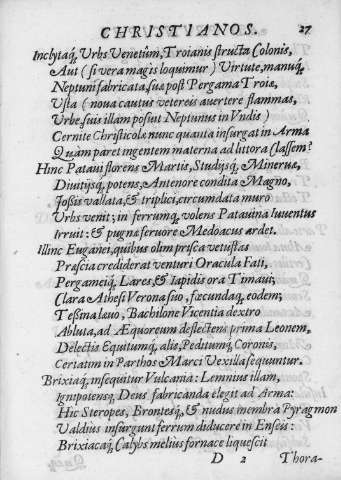 CHRISTIANOS. 27
Inclytaq́; Vrbs Venetûm, Troianis structa Colonis,
Aut (si vera magis loquimur) Virtute, manuq́;
Neptuni fabricata, suæ post Pergama Troiæ,
Vsta (noua cautus vetereis auertere flammas,
Vrbe, suis illam posuit Neptunus in Vndis)
Cernite Christicolæ nunc quanta insurgat in Arma
Quàm paret ingentem materna ad littora Classem?
Hinc Pataui florens Martis, Studijsq́; Mineruæ,
Diuitijsq́; potens, Antenore condita Magno,
Fossis vallata, & triplici, circumdata muro
Vrbs venit; in ferrumq́; volens Patauina Iuuentus
Irruit: & pugnæ feruore Medoacus ardet.
Illinc Euganei, quibus olim prisca vetustas
Præscia crediderat venturi Oracula Fati,
Pergameiq́; Lares, & Iapidis ora Timaui;
Clara Athesi Verona suo, fœcundaq́; eodem;
Teßina læuo, Bachilone Vicentia dextro
Abluta, ad Æquoreum deflectens prima Leonem,
Delectis Equitumq́; alis, Peditumq́; Coronis,
Certatim in Parthos Marci Vexilla sequuntur.
Brixiaq́; insequitur Vulcania: Lemnius illam,
Ignipotensq́; Deus fabricanda elegit ad Arma:
Hic Steropes, Brontesq́; & nudus membra Pyragmon
Valdius insurgunt ferrum diducere in Enseis:
Brixiacaq́; Calybs melius fornace liquescit
D 2 Thora-